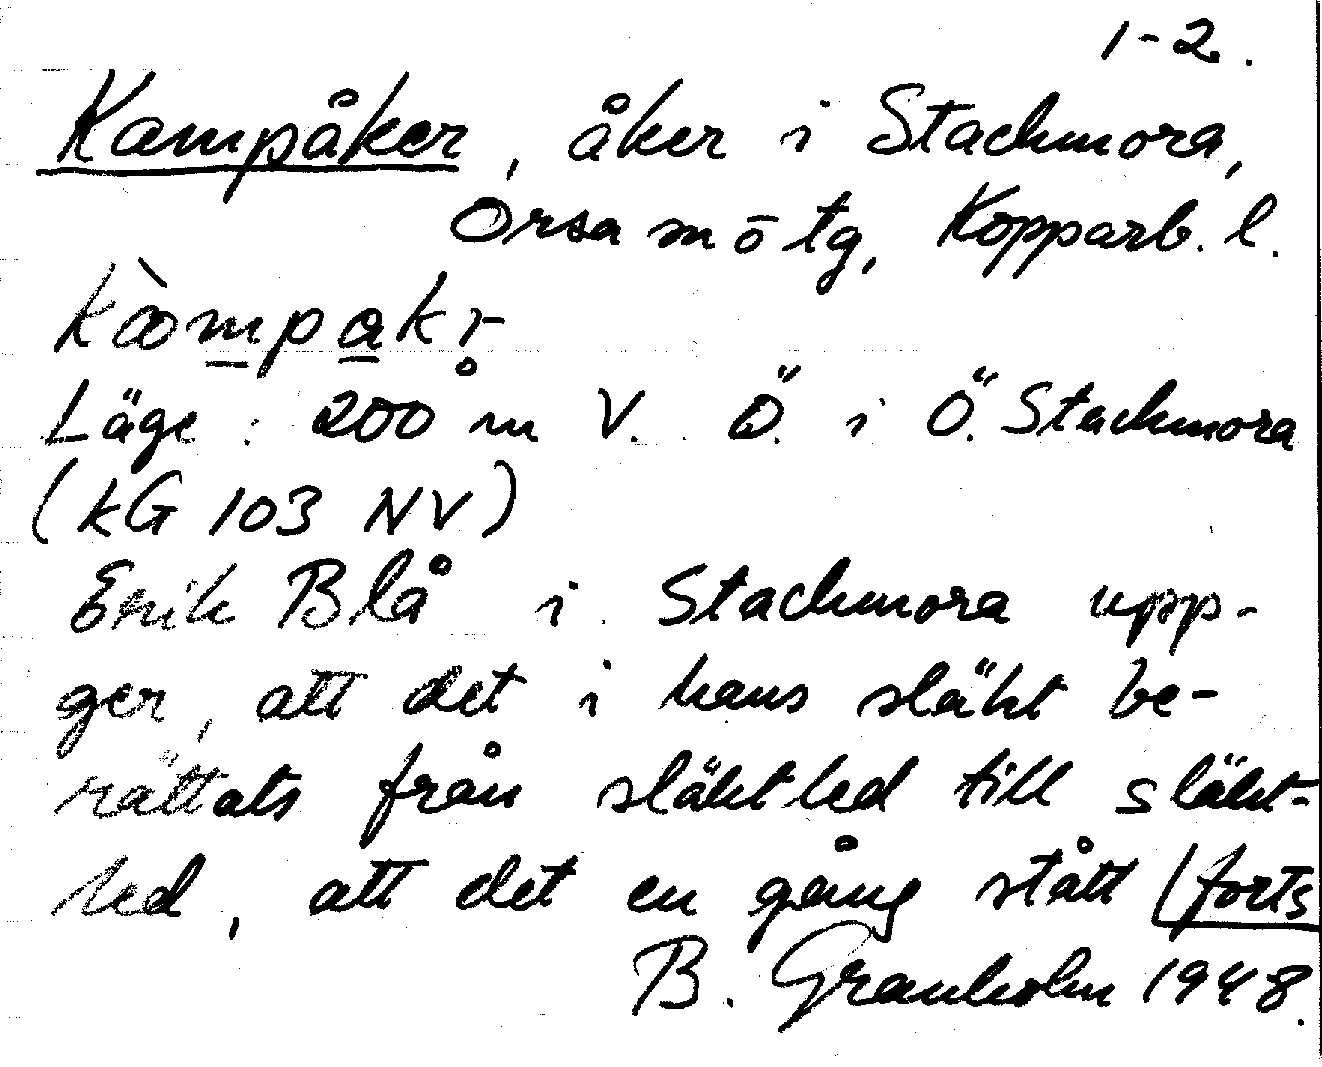 1-2.
Kampåker, åker i Stackmora,
Orsa sn ö tg, Kopparb. l.
Läge: 200 m V. Ö. i Ö. Stackmora
(kG 103 NV)
Erik Blå i Stackmora upp-
ger, att det i hans släkt be-
rättats från släktled till släkt-
led, att det en gång stått (forts
B. Granholm 1948.